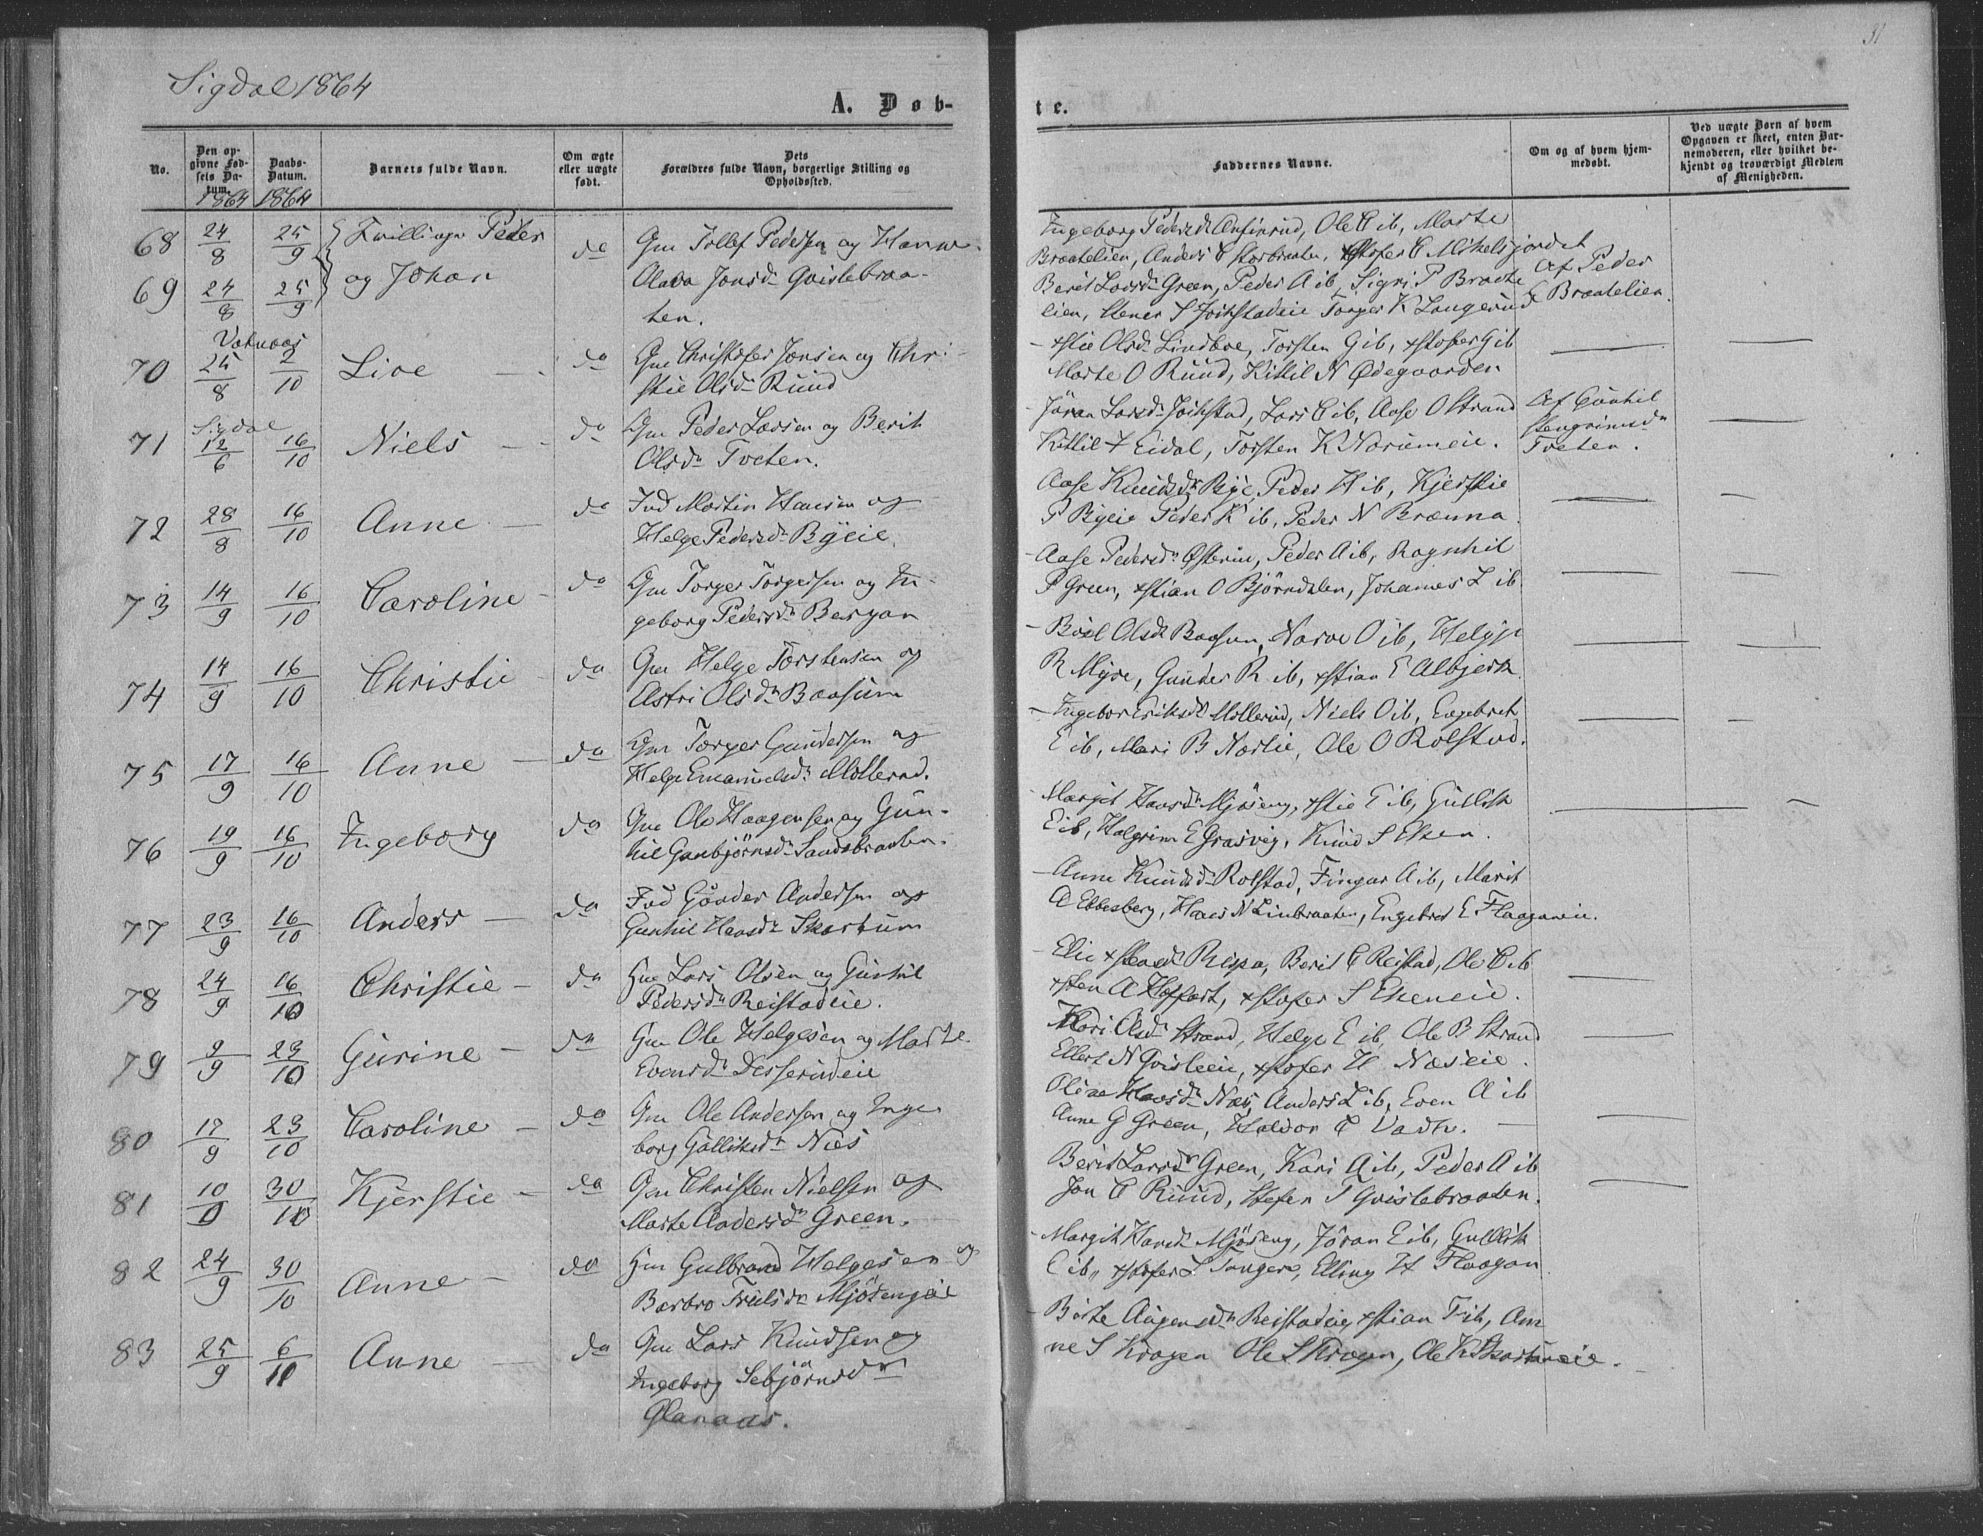 Sigdal 1864
31
A. Døb-
te.
No.
Den op-
givne Fød-
sels Da-
tum.
1864
Daabs-
Datum.
1864
Barnets fulde Navn.
Om ægte
eller uægte
født.
Dets
Forældres fulde Navn, borgerlige Stilling og
Opholdssted.
Faddernes Navne.
Om og af hvem hjem-
medøbt.
Ved uægte Børn af hvem
Opgaven er skeet, enten Bar-
nemoderen, eller hvilket be-
kjendt og troværdigt Medlem
af Menigheden.
68 24/8 25/9 Tvillinger Peder do Gm Tollef Pedersen og Hanna
69 24/8 25/9 og Johan Olava Jonsdr Gvislebraa-
ten.
Ingeborg Pedersdr Enfinrud, Ole C ib, Marte
Braatelien, Anders C Storbraaten, xstofer C Mikelsjordet
Berit Larsdr Green, Peder A ib, Sigri P Braate
lien, Stener S Joihstadeie Torger K Langerud
Af Peder
C Braatelien.
Vatnaas
70 25/8 2/10 Live do Gm Christofer Jonsen og Chri-
stie Olsdr Ruud
xstie Olsdr Lindboe, Torsten G ib, xstofer G ib
Marte O Ruud, Kittil N Ødegaarden
Sigdal
71 12/6 16/10 Niels do Gm Peder Larsen og Berit
Olsdr Tveten.
Jöran Larsdr Joihstad, Lars C ib, Aase O Strand
Kittil T Eidal, Torsten K Norumeie.
Af Gunhil
Stengrimsdr
Tveten.
72 28/8 16/10 Anne do Ind Martin Hansen og
Helge Pedersdr Byeie.
Aase Knudsdr Bye, Peder H ib, Kjerstie
P Byeie Peder K ib, Peder N Brænna
73 14/9 16/10 Caroline do Gm Torger Torgersen og In-
geborg Pedersdr Bergan
Aase Pedersdr Østerin, Peder A ib, Ragnhil
P Green, xstian O Bjørndalen, Johannes L ib.
74 14/9 16/10 Christie do Gm Helge Torstensen og
Astri Olsdr Baasum
Böel Olsdr Baasum, Narve O ib, Helge
R Myre, Gunder R ib, xstian E Albjerk
75 17/9 16/10 Anne do Gm Torger Gundersen og
Helge Emanuelsdr Möllerud.
Ingebor Eriksdr Möllerud, Niels O ib, Engebret
E ib, Mari B Nærlie, Ole O Rolstad.
76 19/9 16/10 Ingeborg do Gm Ole Haagensen og Gun-
hil Gunbjörnsdr Sandsbraaten.
Margit Hansdr Mjöseng, xstie E ib, Gullik
E ib, Halgrim E Grasvig, Knud S Eken.
77 23/9 16/10 Anders do Ind Gunder Andersen og
Gunhil Hansdr Skartum
Anne Knudsdr Rolstad, Fingar A ib, Marit
A Ebbesberg, Hans N Linbraaten, Engebret E Flaaganeie.
78 24/9 16/10 Christie do Hm Lars Olsen og Gunhil
Pedersdr Reistadeie.
Berit C Reistad, Ole C ib
xsten A Hoffart, xstofer S Ekeneie.
79 9/9 23/10 Gurine do Hm Ole Helgesen og Marte
Evensdr Desserudeie
Kari Olsdr Strand, Helge E ib, Ole B Strand
Ellert N Gvisleeie, xstofer H Næseie.
80 17/9 23/10 Caroline do Gm Ole Andersen og Inge-
borg Gulliksdr Næs
Oline Hansdr Næs, Anders L ib, Even A ib
Anne G Green, Haldor C Vadh.
81 10/9 30/10 Kjerstie do Gm Christen Nielsen og
Marte Andersdr Green.
Berit Larsdr Green, Kari A ib, Peder A ib
Jon C Ruud, Stefen T Gvislebraaten.
82 24/9 30/10 Anne do Hm Gulbrand Helgesen og
Barbro Trulsdr Mjösengeie
Margit Hansdr Mjöseng, Jöran E ib, Gullik
E ib, xstofer L Tangere, Elling H Flaagan
83 25/9 6/11 Anne do Gm Lars Knudsen og
Ingeborg Sebjörnsdr
Glanaas.
Birte Augensdr Reistadeie, xstian T ib, An-
ne S Kragen Ole S Kragen, Ole K Skartumeie.